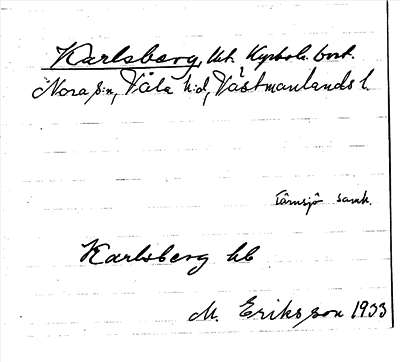 Karlsberg, lht. t. Kyrkoh. bost.
Nora sn, Våla hd, Västmanlands l.
Tärnsjö samh.
Karlsberg hb
M. Eriksson 1933